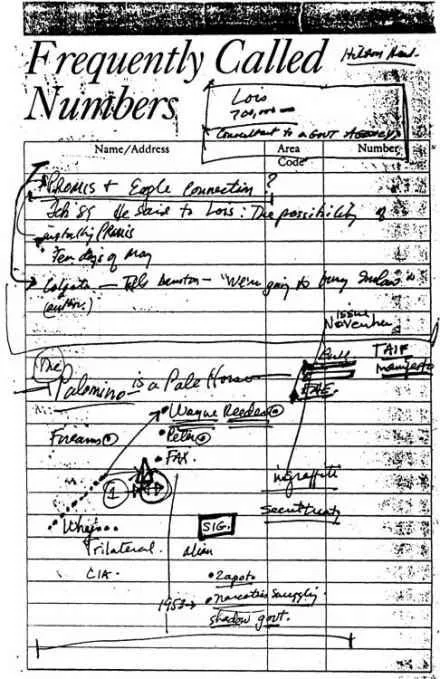 Frequently Called
Numbers
Hilton Head.
Lois
700,000 —
Consultant to a GOVT Agency
Name/Address Area Code Number
PROMIS + Eagle Connection ?
Feb '85 He said to Lois: The possibility of
installing PROMIS
Few days of May
— Tells — "We're going to bury Inslaw"
issue
November
TAIF
manifesto
The
Palomino — is a Pale Horse
Wayne Reeder
Firearms
Peter
FAX.
1
ingraffiti
Secret treaty
SIG.
Trilateral. alien
CIA. • Zapata
1953 → • narcotics smuggling.
shadow govt.